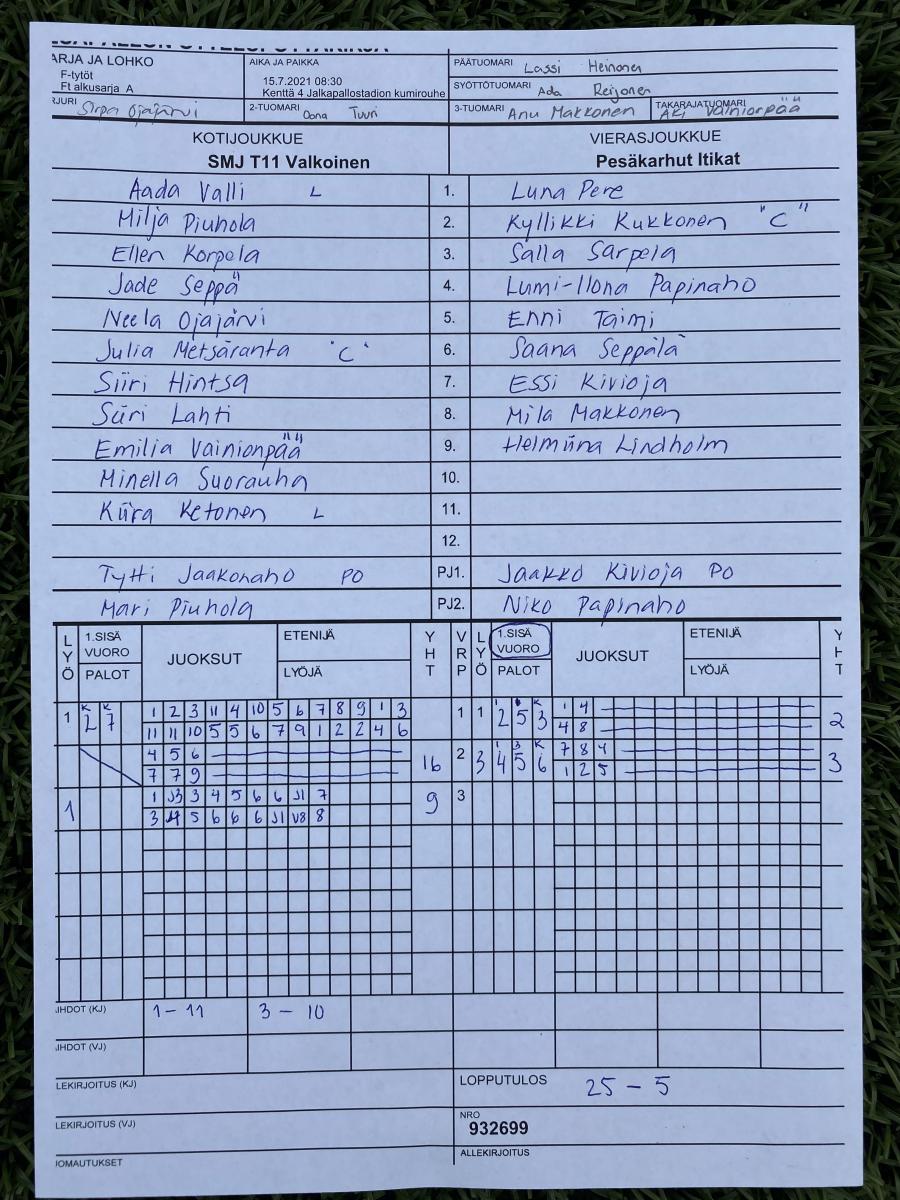 ARJA JA LOHKO
F-tytöt
Ft alkusarja A
AIKA JA PAIKKA
15.7.2021 08:30
Kenttä 4 Jalkapallostadion kumirouhe
PÄÄTUOMARI Lassi Heinonen
SYÖTTÖTUOMARI Ada Reijonen
RJURI Sirpa Ojajärvi
2-TUOMARI Oona Tuuri
3-TUOMARI Anu Makkonen
TAKARAJATUOMARI Aki Vainionpää
KOTIJOUKKUE VIERASJOUKKUE
SMJ T11 Valkoinen Pesäkarhut Itikat
Aada Valli L 1. Luna Pere
Milja Piuhola 2. Kyllikki Kukkonen "C"
Ellen Korpela 3. Salla Sarpela
Jade Seppä 4. Lumi-Ilona Papinaho
Neela Ojajärvi 5. Enni Taimi
Julia Metsäranta "C" 6. Saana Seppälä
Siiri Hintsa 7. Essi Kivioja
Siiri Lahti 8. Mila Makkonen
Emilia Vainionpää 9. Helmiina Lindholm
Minella Suorauha 10.
Kiira Ketonen L 11.
12.
Tytti Jaakonaho PO PJ1. Jaakko Kivioja PO
Mari Piuhola PJ2. Niko Papinaho
LYÖ 1.SISÄ VUORO PALOT JUOKSUT ETENIJÄ LYÖJÄ YHT VRP LYÖ 1.SISÄ VUORO PALOT JUOKSUT ETENIJÄ LYÖJÄ YHT
1 K2 K7 1 2 3 11 4 10 5 6 7 8 9 1 3 1 1 2 5 3 1 4 2
11 11 10 5 5 6 7 9 1 2 2 4 6 4 8
4 5 6 16 2 3 4 5 6 7 8 4 3
7 7 9 1 2 5
1 1 J3 3 4 5 6 6 J1 7 9 3
3 5 6 6 6 J1 V8 8
IHDOT (KJ) 1-11 3-10
IHDOT (VJ)
LEKIRJOITUS (KJ) LOPPUTULOS 25-5
LEKIRJOITUS (VJ) NRO
932699
IOMAUTUKSET ALLEKIRJOITUS